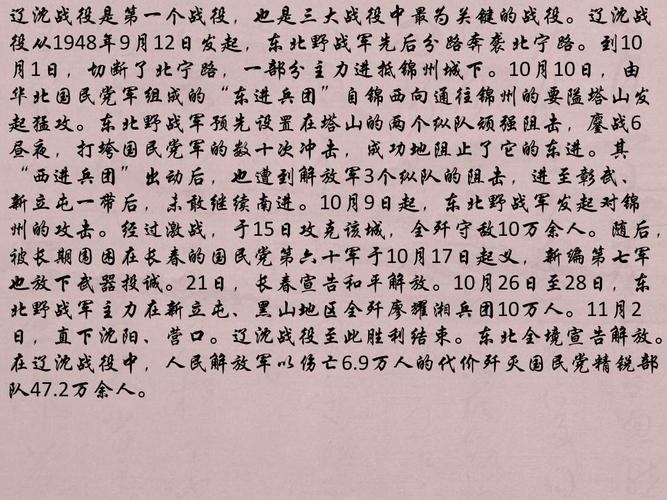 辽沈战役是第一个战役，也是三大战役中最为关键的战役。辽沈战
役从1948年9月12日发起，东北野战军先后分路奔袭北宁路。到10
月1日，切断了北宁路，一部分主力进抵锦州城下。10月10日，由
华北国民党军组成的“东进兵团”自锦西向通往锦州的要隘塔山发
起猛攻。东北野战军预先设置在塔山的两个纵队顽强阻击，鏖战6
昼夜，打垮国民党军的数十次冲击，成功地阻止了它的东进。其
“西进兵团”出动后，也遭到解放军3个纵队的阻击，进至彰武、
新立屯一带后，未敢继续南进。10月9日起，东北野战军发起对锦
州的攻击。经过激战，于15日攻克该城，全歼守敌10万余人。随后，
被长期围困在长春的国民党第六十军于10月17日起义，新编第七军
也放下武器投诚。21日，长春宣告和平解放。10月26日至28日，东
北野战军主力在新立屯、黑山地区全歼廖耀湘兵团10万人。11月2
日，直下沈阳、营口。辽沈战役至此胜利结束。东北全境宣告解放。
在辽沈战役中，人民解放军以伤亡6.9万人的代价歼灭国民党精锐部
队47.2万余人。